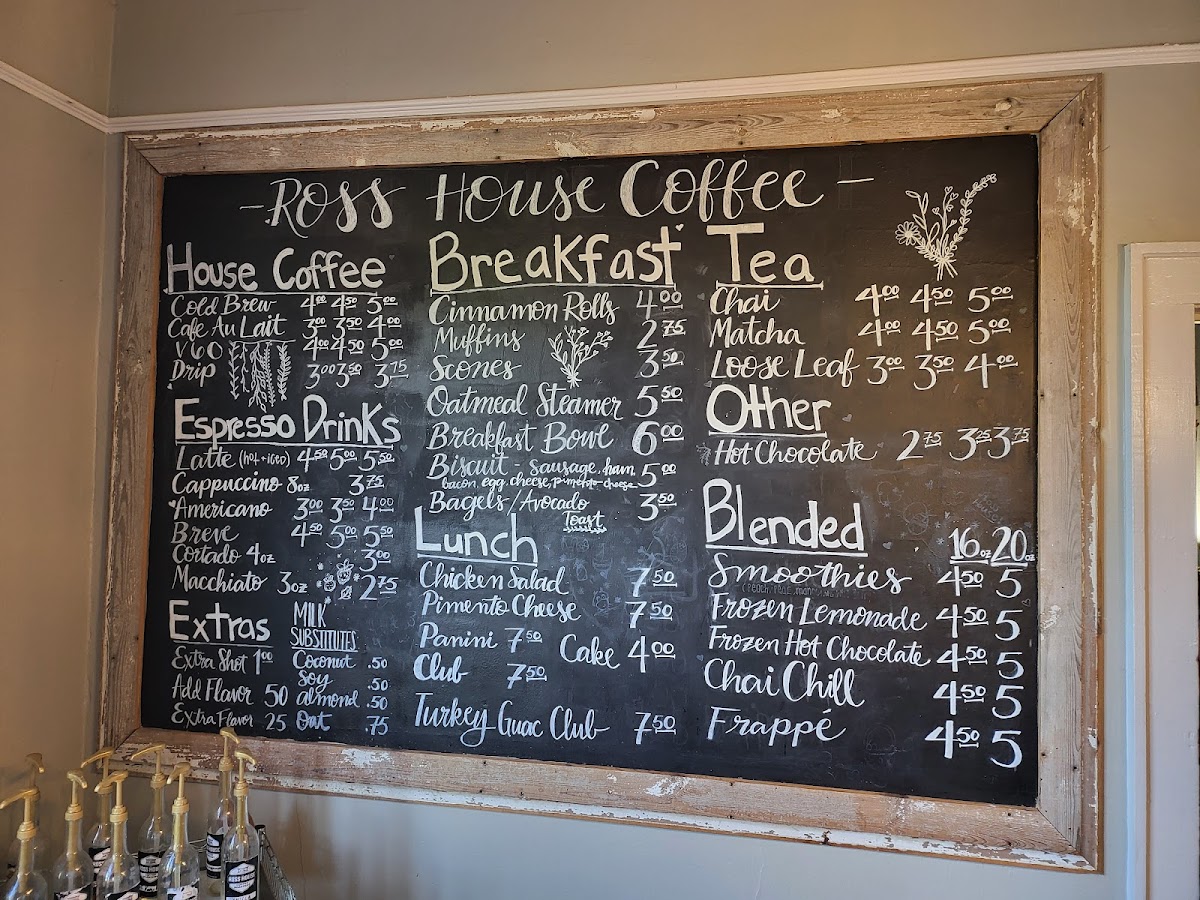 -Ross House Coffee-
House Coffee
Cold Brew 4.00 4.50 5.00
Cafe Au Lait 3.00 3.50 4.00
V60 4.00 4.50 5.00
Drip 3.00 3.50 3.75
Espresso Drinks
Latte (hot + iced) 4.50 5.00 5.50
Cappuccino 8oz 3.75
Americano 3.00 3.50 4.00
Breve 4.50 5.00 5.50
Cortado 4oz 3.00
Macchiato 3oz 2.75
Extras
Extra Shot 1.00
Add Flavor 50
Extra Flavor 25
MILK
SUBSTITUTES
Coconut .50
Soy .50
almond .50
Oat .75
Breakfast
Cinnamon Rolls 4.00
Muffins 2.75
Scones 3.50
Oatmeal Steamer 5.50
Breakfast Bowl 6.00
Biscuit - sausage, ham 5.00
bacon, egg, cheese, pimento cheese
Bagels/Avocado 3.50
Toast
Lunch
Chicken Salad 7.50
Pimento Cheese 7.50
Panini 7.50
Cake 4.00
Club 7.50
Turkey Guac Club 7.50
Tea
Chai 4.00 4.50 5.00
Matcha 4.00 4.50 5.00
Loose Leaf 3.00 3.50 4.00
Other
Hot Chocolate 2.75 3.25 3.75
Blended
16oz 20oz
Smoothies 4.50 5
Frozen Lemonade 4.50 5
Frozen Hot Chocolate 4.50 5
Chai Chill 4.50 5
Frappé 4.50 5
ROSS HOUSE